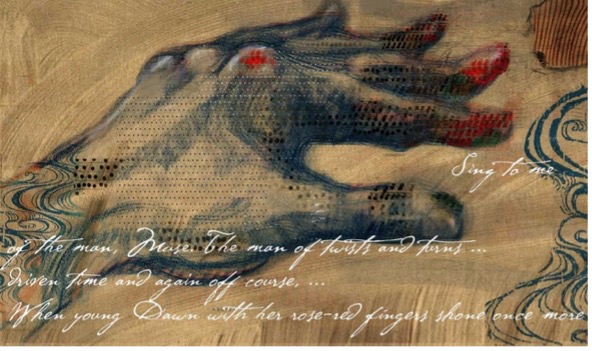 Sing to me
of the man, Muse. The man of twists and turns ...
driven time and again off course, ...
When young Dawn with her rose-red fingers shone once more